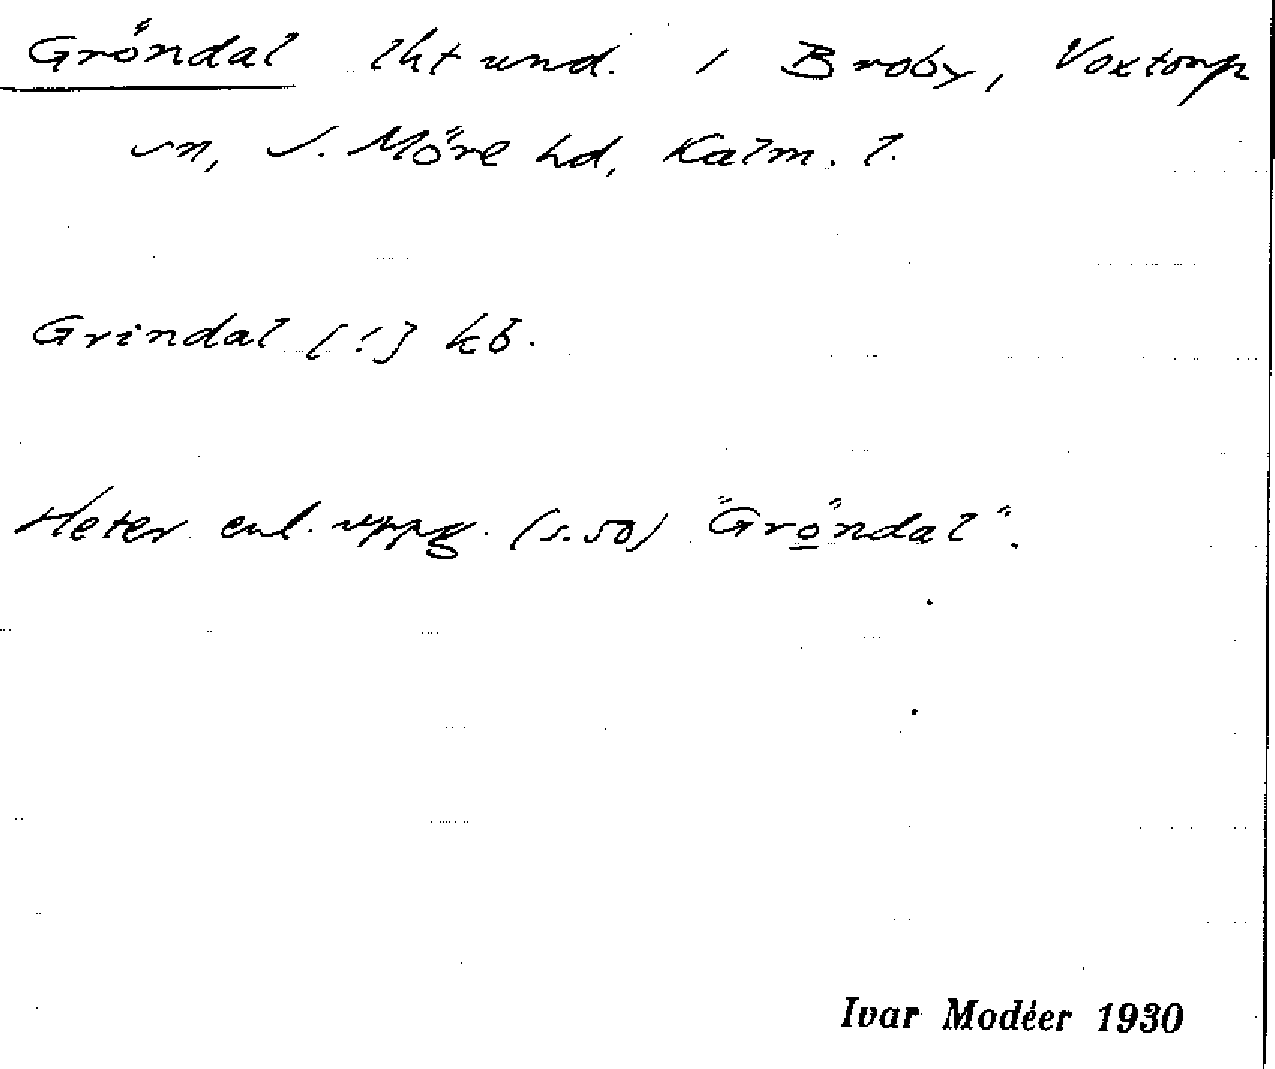 Gröndal lht und. i Broby, Voxtorp
sn, S. Möre hd, Kalm. l.
Grindal [!] kb.
Heter enl. uppg. (s. 50) "Grö̲ndal".
Ivar Modéer 1930